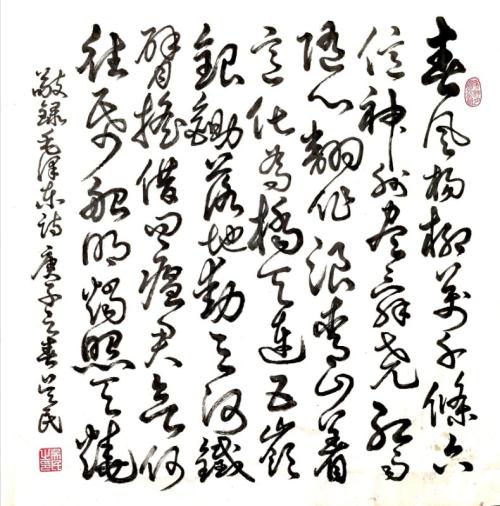 春風楊柳萬千條六
億神州盡舜堯紅雨
隨心翻作浪青山着
意化為橋天連五嶺
銀鋤落地動三河鐵
臂搖借問瘟君欲何
往紙船明燭照天燒
敬録毛澤東詩 庚子之春 吴民